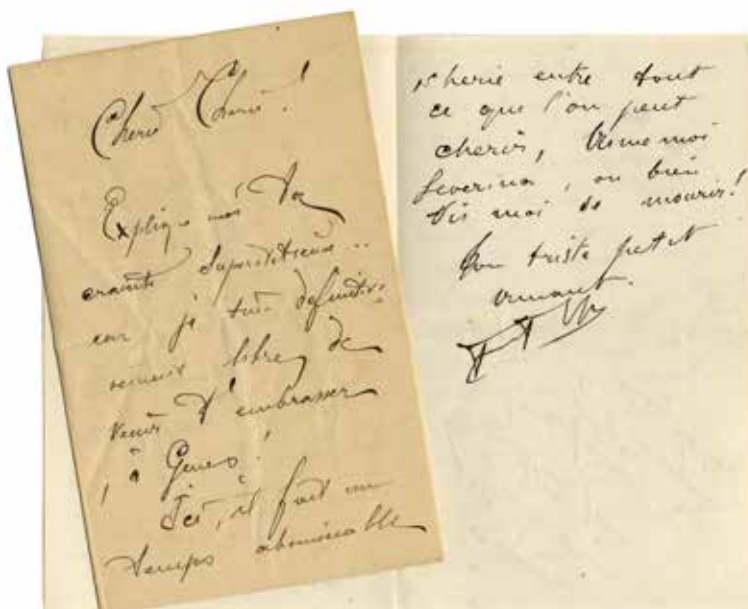 Cherie Cherie!
Explique moi ta
crainte superstitieuse...
car je suis définitive
vement libre de
venir t'embrasser
à Genes!
Ici, il fait un
temps abominable
cherie entre tout
ce que l'on peut
cherir, Aime moi
Severina, ou bien
dis moi de mourir!
Ton triste petit
amant.